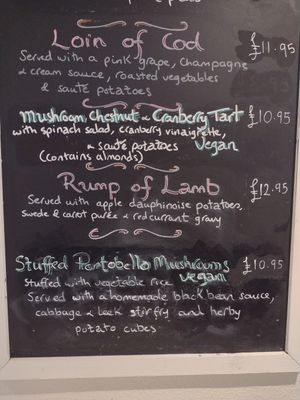 Loin of Cod £11.95
Served with a pink grape, champagne
& cream sauce, roasted vegetables
& sauté potatoes
Mushroom, Chestnut & Cranberry Tart £10.95
with spinach salad, cranberry vinaigrette,
& sauté potatoes Vegan
(contains almonds)
Rump of Lamb £12.95
Served with apple dauphinoise potatoes,
Swede & carrot purée & redcurrant gravy
Stuffed Portobello Mushrooms £10.95
Stuffed with vegetable rice Vegan
Served with a homemade black bean sauce,
cabbage & leek stir fry and herby
potato cubes